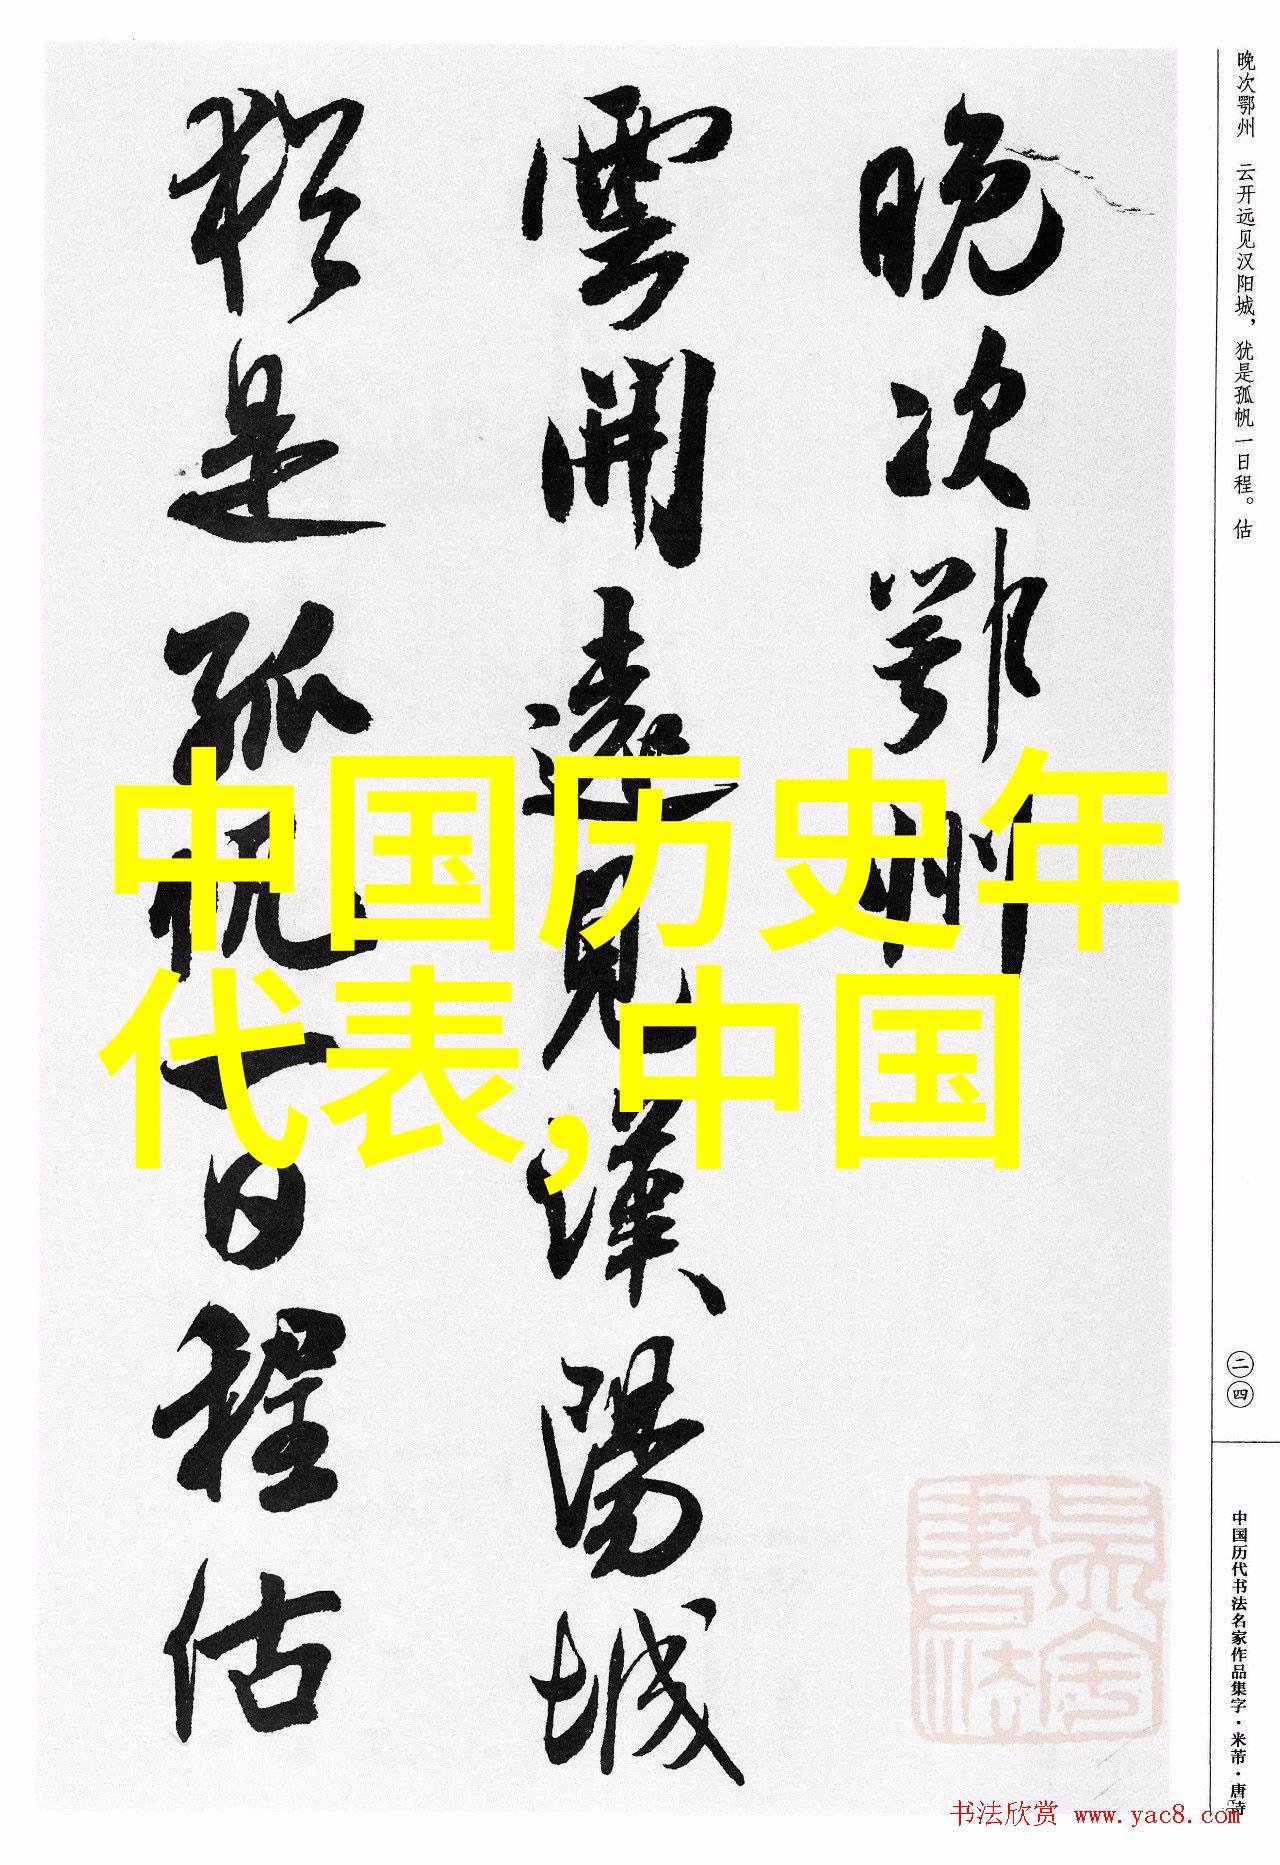 晚次鄂州
雲開遠見漢陽城
猶是孤帆一日程估
中国历史年
代表,中国
晚次鄂州 云开远见汉阳城，犹是孤帆一日程。估
二四
中国历代书法名家作品集字·米芾·唐诗
书法欣赏 www.yac8.com